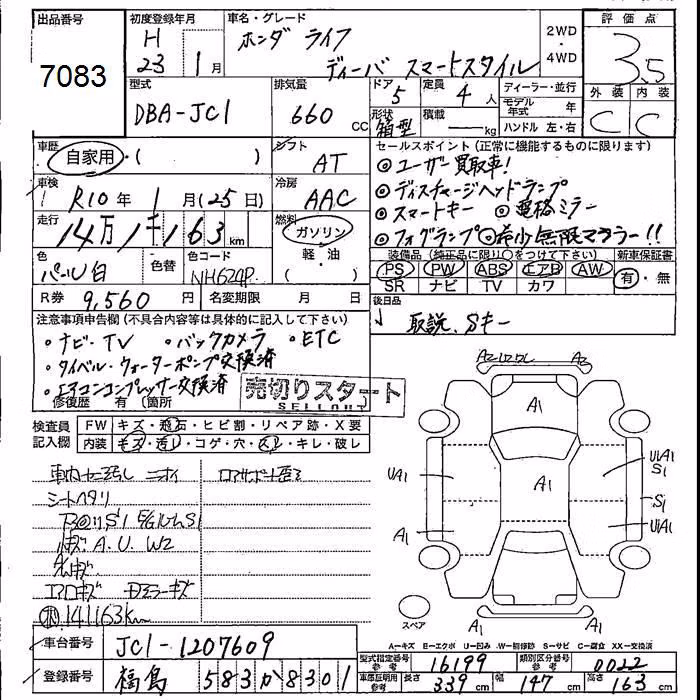 出品番号
7083
初度登録年月
H
23 1月
車名・グレード
ホンダ ライフ
ディーバ スマートスタイル
2WD
・
4WD
評価点
3.5
外装 内装
C C
型式
DBA-JC1
排気量
660 CC
ドア
5
定員
4人
形状
箱型
積載
kg
ディーラー・並行
モデル年式 年
ハンドル 左・右
車歴
自家用・( )
シフト
AT
車検
R10年 1月(25日)
冷房
AAC
走行
14万1千163km
燃料
ガソリン
軽・油
( )
色
パール白
色替
色コード
NH624P
R券 9,560円
名変期限 月 日
セールスポイント(正常に機能するものに限ります)
◎ユーザー買取車!
◎ディスチャージヘッドランプ
◎スマートキー ◎電格ミラー
◎フォグランプ◎希少無限マフラー!!
装備品(純正品に限り○をつけて下さい)
PS PW ABS エアB AW
SR ナビ TV カワ
新車保証書
有・無
後日品
取説、Sキー
注意事項申告欄(不具合内容等は具体的に記入して下さい)
・ナビ・TV ・バックカメラ ・ETC
・タイベル・ウォーターポンプ交換済
・エアコンコンプレッサー交換済
修復歴 有 (箇所
売切りスタート
SELLOUT
検査員記入欄
FW キズ・飛石・ヒビ割・リペア跡・X要
内装 キズ・汚レ・コゲ・穴・スレ・キレ・破レ
シートヘタリ
A.U.W2
141163km
車台番号 JC1-1207609
登録番号 福島 583か8301
A2 A2
A1
UA1 A1 U1A1
S1
S1
A1 U1A1
A1
スペア
A=キズ E=エクボ U=凹み W=補修跡 S=サビ C=腐食 XX=交換済
型式指定番号 16199 類別区分番号 0022
車庫証明用参考 長さ 339cm 幅 147cm 高さ 163cm